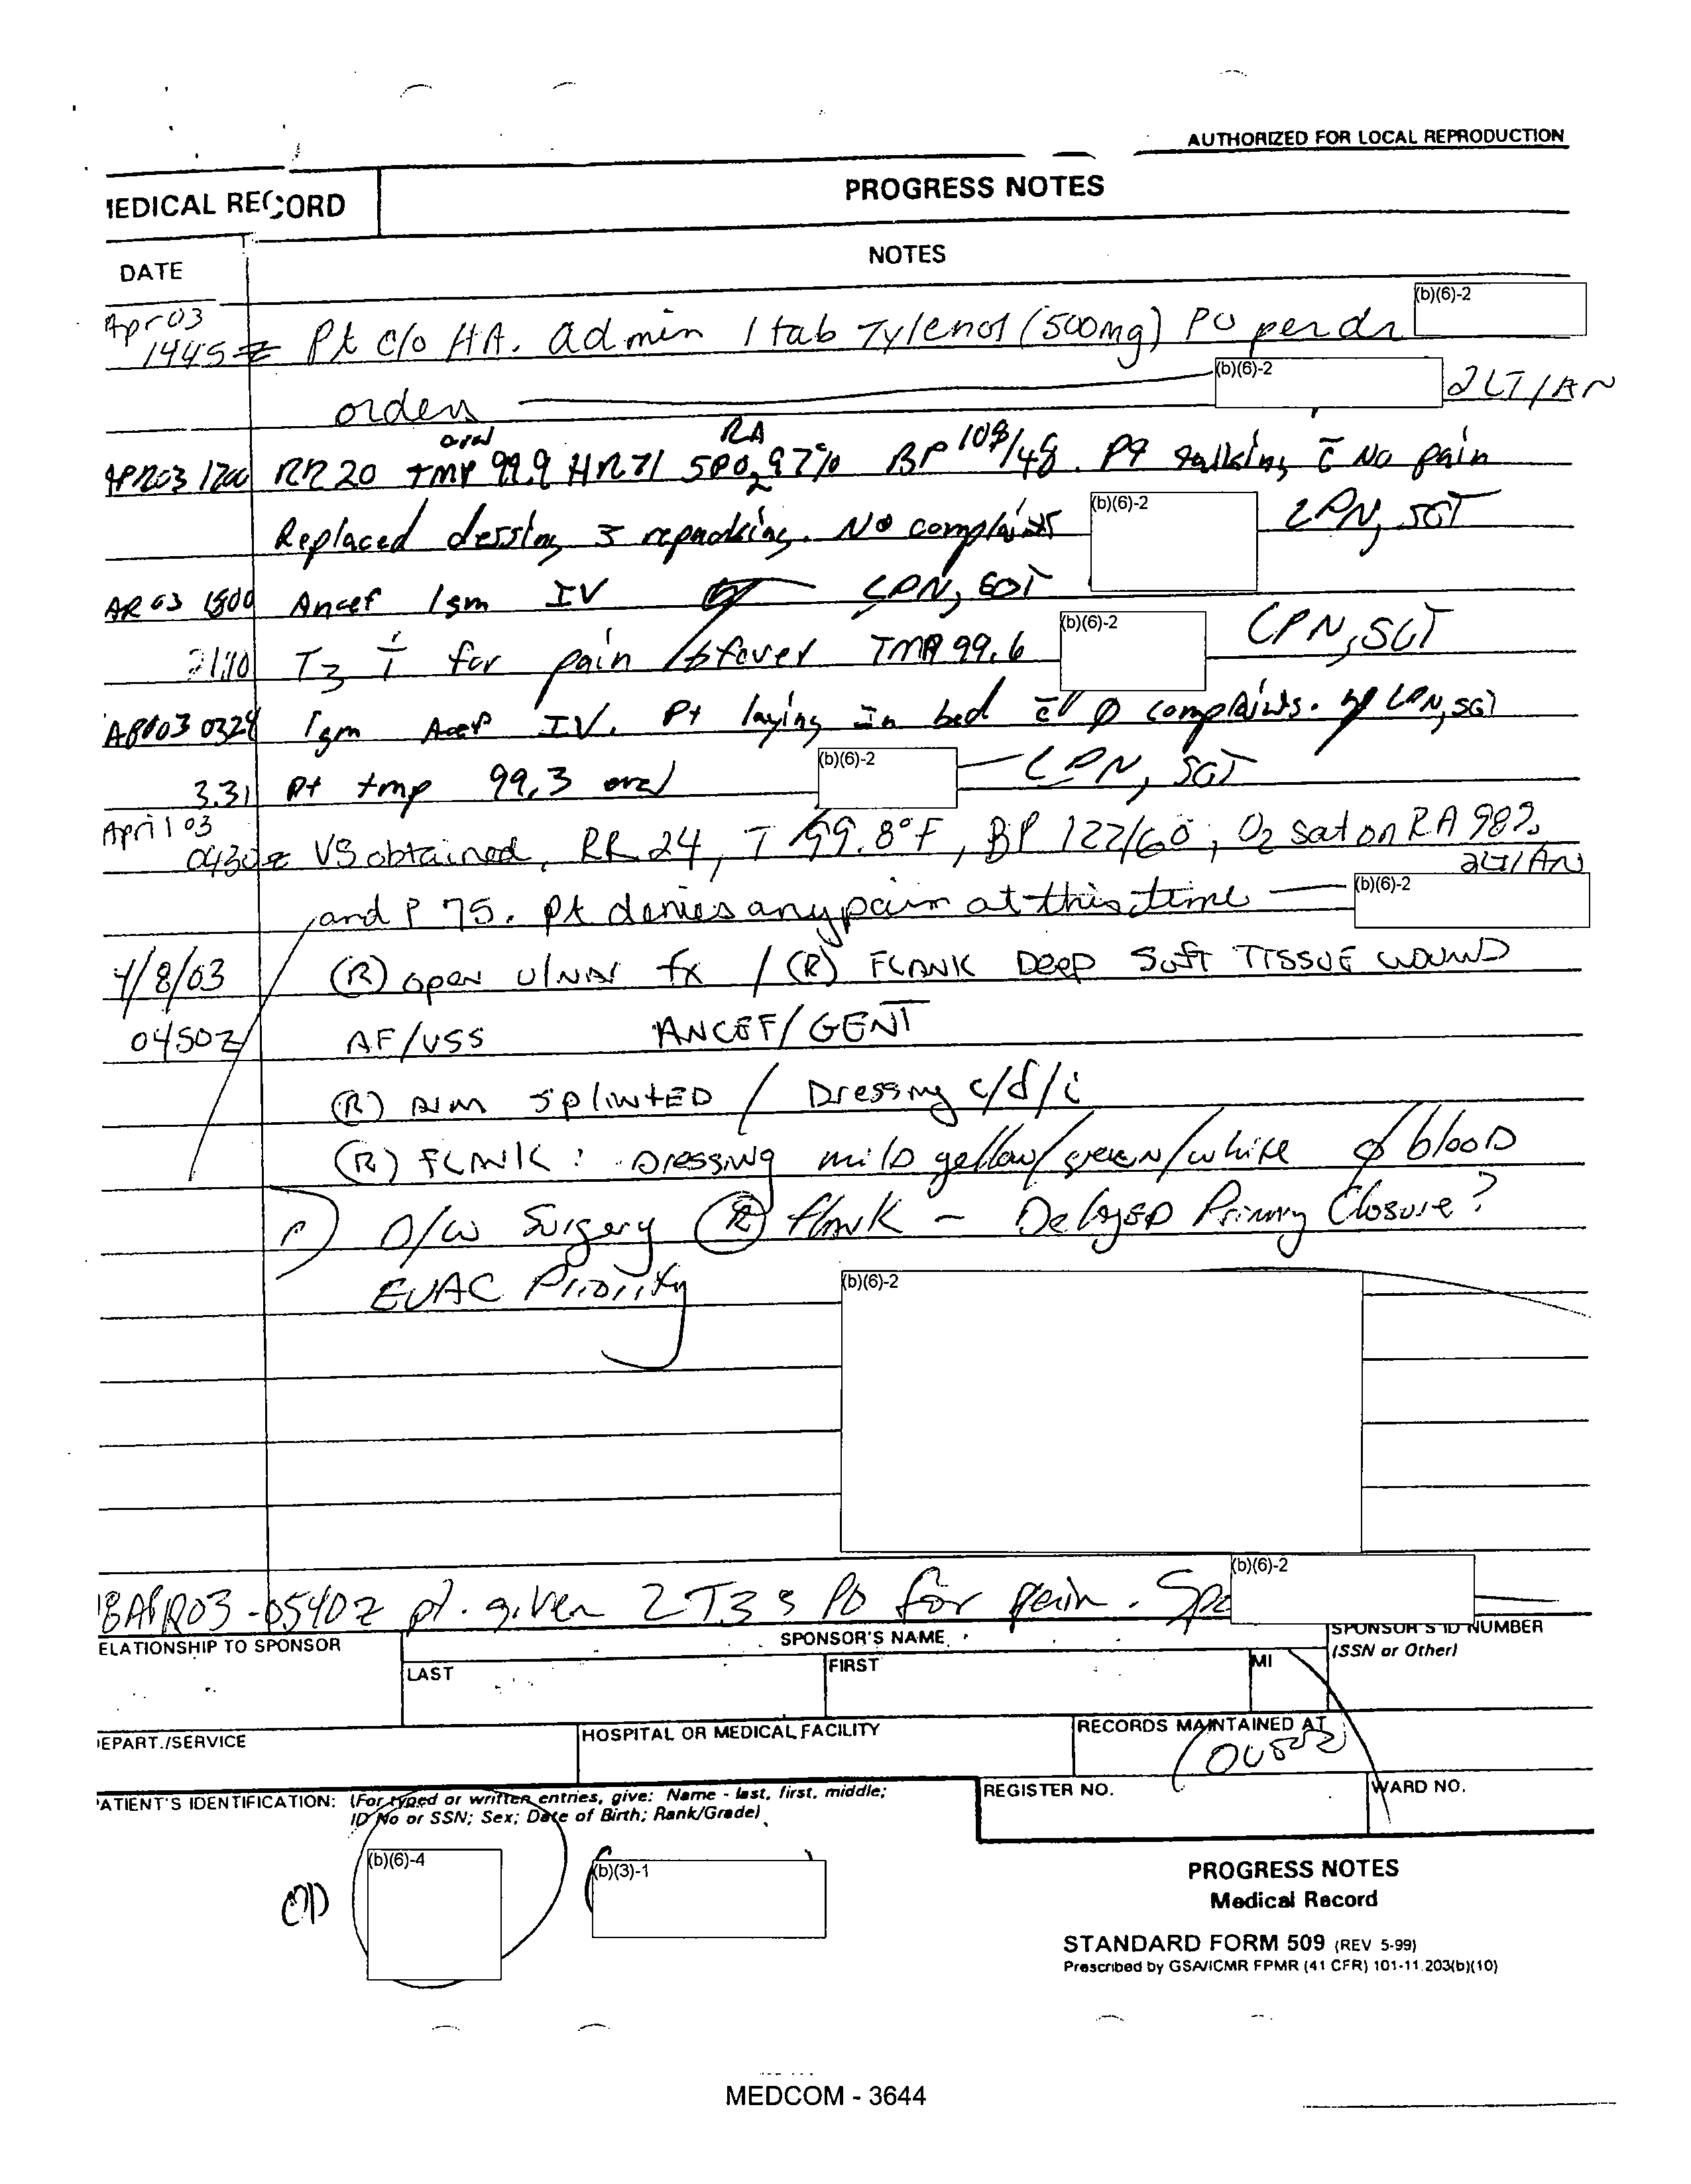 AUTHORIZED FOR LOCAL REPRODUCTION
MEDICAL RECORD
PROGRESS NOTES
DATE
NOTES
Apr 03
1445z Pt c/o HA. admin 1 tab Tylenol (500mg) PO per dr (b)(6)-2
orders (b)(6)-2 2LT/AN
oral RA
APR03 1700 RR 20 tmp 99.9 HR 71 SPO2 97% BP 108/48. Pt talking c̄ No pain
Replaced dessing s̄ repacking. No complaints (b)(6)-2 LPN, SGT
APR 03 1800 Ancef 1gm IV LPN, SGT
2110 T3 i for pain / fever TMP 99.6 (b)(6)-2 LPN, SGT
APR03 0324 1gm Ancef IV. Pt laying in bed c̄ Ø complaints. LPN, SGT
331 Pt tmp 99.3 oral (b)(6)-2 LPN, SGT
April 03
0430z VS obtained, RR 24, T 99.8°F, BP 122/60, O2 sat on RA 98%
2LT/AN
and P 75. Pt denies any pain at this time (b)(6)-2
4/8/03 (R) open ulnar fx / (R) FLANK Deep Soft TISSUE WOUND
0450z AF/VSS ANCEF/GENT
(R) Arm splinted / Dressing c/d/i
(R) FLANK: Dressing mild yellow/green/white Ø blood
D/W Surgery (R) flank - Delayed Primary Closure?
EVAC Priority
(b)(6)-2
8APR03-0540z pt. given 2 T3s PO for pain. Spc (b)(6)-2
RELATIONSHIP TO SPONSOR
SPONSOR'S NAME
SPONSOR'S ID NUMBER
(SSN or Other)
LAST
FIRST
MI
DEPART./SERVICE
HOSPITAL OR MEDICAL FACILITY
RECORDS MAINTAINED AT
PATIENT'S IDENTIFICATION: (For typed or written entries, give: Name - last, first, middle;
ID No or SSN; Sex; Date of Birth; Rank/Grade)
REGISTER NO.
WARD NO.
(b)(6)-4
(b)(3)-1
PROGRESS NOTES
Medical Record
STANDARD FORM 509 (REV 5-99)
Prescribed by GSA/ICMR FPMR (41 CFR) 101-11.203(b)(10)
MEDCOM - 3644